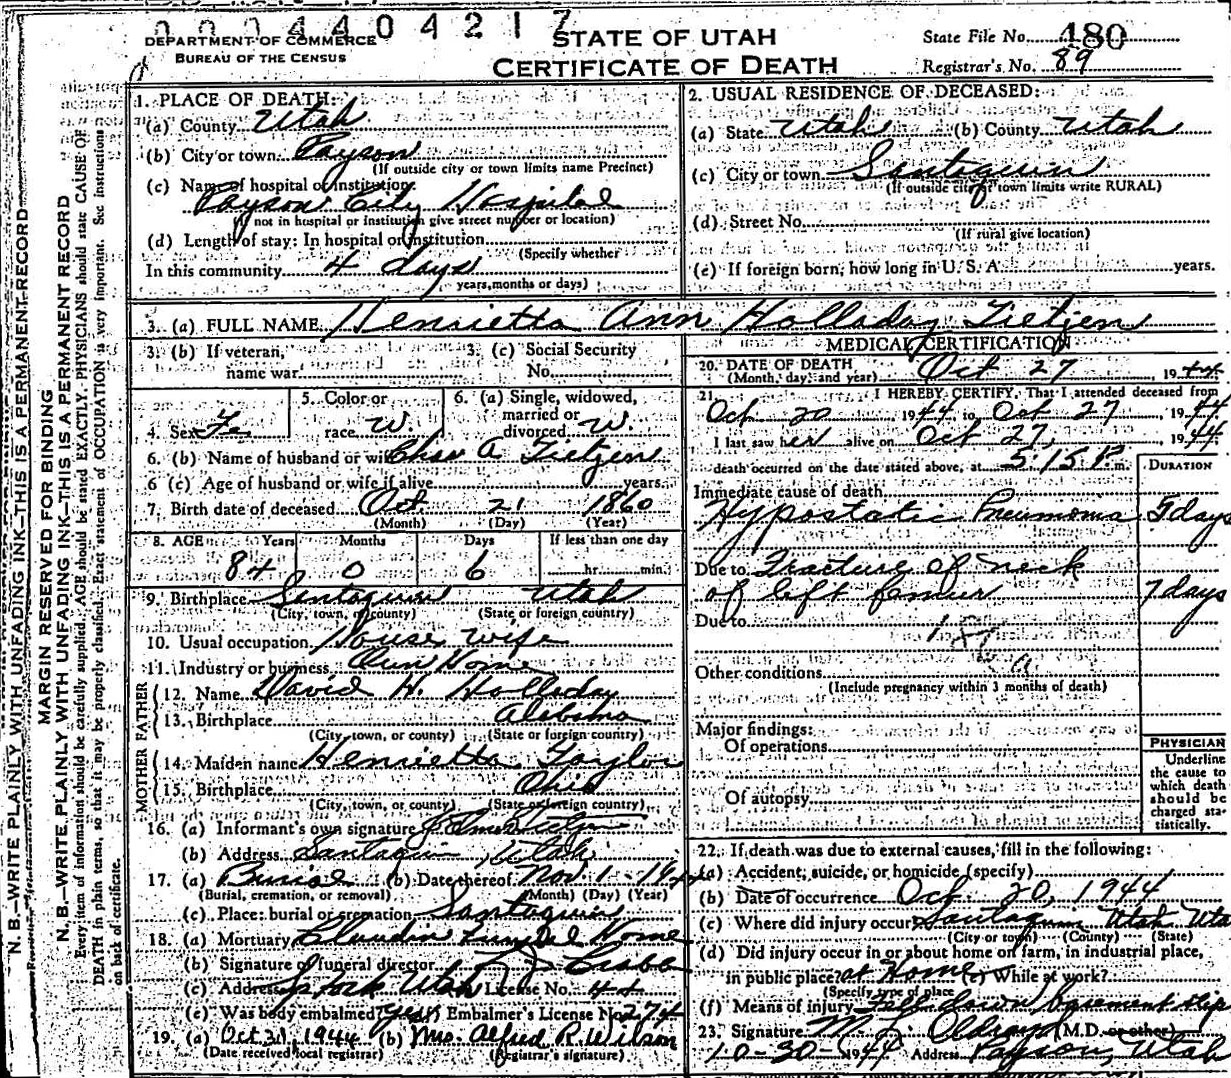 0004404217
DEPARTMENT OF COMMERCE
BUREAU OF THE CENSUS
STATE OF UTAH
CERTIFICATE OF DEATH
State File No. 480
Registrar's No. 89
N. B.—WRITE PLAINLY WITH UNFADING INK—THIS IS A PERMANENT RECORD
MARGIN RESERVED FOR BINDING
N. B.—WRITE PLAINLY WITH UNFADING INK—THIS IS A PERMANENT RECORD
Every item of information should be carefully supplied. AGE should be stated EXACTLY. PHYSICIANS should state CAUSE OF
DEATH in plain terms, so that it may be properly classified. Exact statement of OCCUPATION is very important. See instructions
on back of certificate.
1. PLACE OF DEATH:
(a) County Utah
(b) City or town Payson
(If outside city or town limits name Precinct)
(c) Name of hospital or institution:
Payson City Hospital
(If not in hospital or institution give street number or location)
(d) Length of stay: In hospital or institution
(Specify whether
In this community 4 days
years, months or days)
2. USUAL RESIDENCE OF DECEASED:
(a) State Utah (b) County Utah
(c) City or town Santaquin
(If outside city or town limits write RURAL)
(d) Street No.
(If rural give location)
(e) If foreign born, how long in U. S. A. years.
3. (a) FULL NAME Henrietta Ann Holladay Tietjen
3. (b) If veteran,
name war
3. (c) Social Security
No.
4. Sex Fe
5. Color or
race W.
6. (a) Single, widowed,
married or
divorced W.
6. (b) Name of husband or wife Chas A Tietjen
6 (c) Age of husband or wife if alive years
7. Birth date of deceased Oct. 21 1860
(Month) (Day) (Year)
8. AGE Years Months Days If less than one day
84 0 6 hr. min.
9. Birthplace Santaquin Utah
(City, town, or county) (State or foreign country)
10. Usual occupation House wife
11. Industry or business Own Home
FATHER
12. Name David H. Holladay
13. Birthplace Alabama
(City, town, or county) (State or foreign country)
MOTHER
14. Maiden name Henrietta Taylor
15. Birthplace Ohio
(City, town, or county) (State or foreign country)
16. (a) Informant's own signature
(b) Address Santaquin, Utah
17. (a) Burial (b) Date thereof Nov. 1 - 1944
(Burial, cremation, or removal) (Month) (Day) (Year)
(c) Place: burial or cremation Santaquin
18. (a) Mortuary Claudin Funeral Home
(b) Signature of funeral director
(c) Address Utah License No. 44
(e) Was body embalmed? Yes Embalmer's License No. 274
19. (a) Oct 31, 1944 (b) Mrs. Alfred R. Wilson
(Date received local registrar) (Registrar's signature)
MEDICAL CERTIFICATION
20. DATE OF DEATH Oct 27 1944
(Month, day and year)
21. I HEREBY CERTIFY, That I attended deceased from
Oct 20 1944 to Oct 27, 1944
I last saw her alive on Oct 27, 1944
death occurred on the date stated above, at 5:15 P. m.
DURATION
Immediate cause of death
Hypostatic Pneumonia 5 days
Due to Fracture of neck
of left femur 7 days
Due to
Other conditions
(Include pregnancy within 3 months of death)
Major findings:
Of operations
Of autopsy
PHYSICIAN
Underline
the cause to
which death
should be
charged sta-
tistically.
22. If death was due to external causes, fill in the following:
(a) Accident, suicide, or homicide (specify)
(b) Date of occurrence Oct. 20, 1944
(c) Where did injury occur Santaquin Utah Uta
(City or town) (County) (State)
(d) Did injury occur in or about home on farm, in industrial place,
in public place? at Home (e) While at work?
(Specify type of place
(f) Means of injury Fell down basement step
23. Signature (M.D. or other)
10-30-1944 Address Payson, Utah